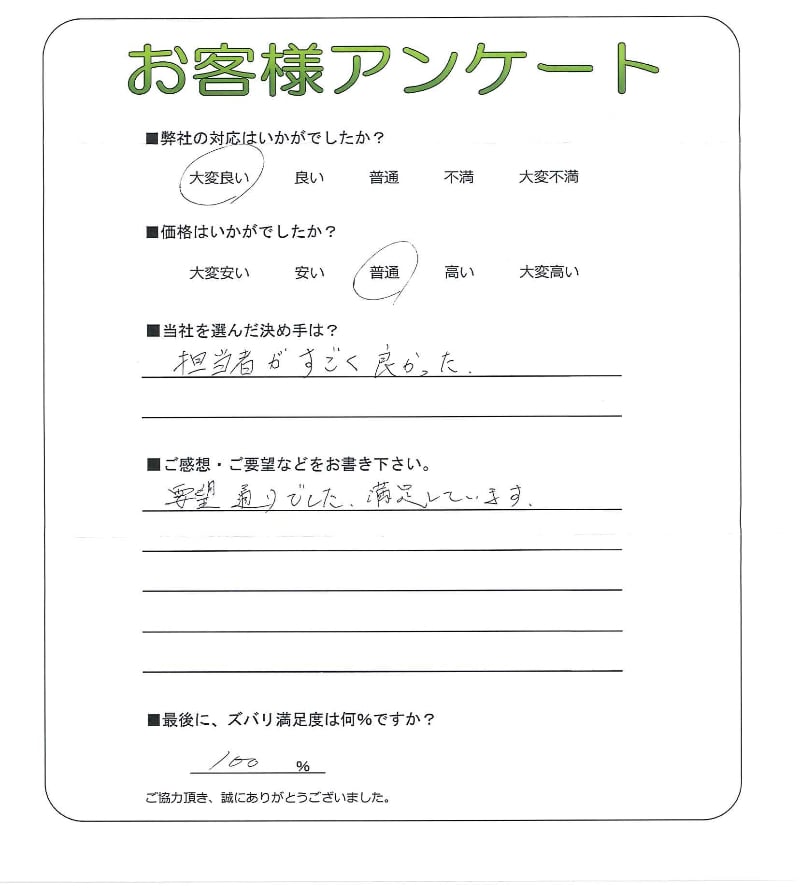 お客様アンケート
■弊社の対応はいかがでしたか？
大変良い 良い 普通 不満 大変不満
■価格はいかがでしたか？
大変安い 安い 普通 高い 大変高い
■当社を選んだ決め手は？
担当者がすごく良かった.
■ご感想・ご要望などをお書き下さい。
要望通りでした、満足しています.
■最後に、ズバリ満足度は何％ですか？
100 ％
ご協力頂き、誠にありがとうございました。